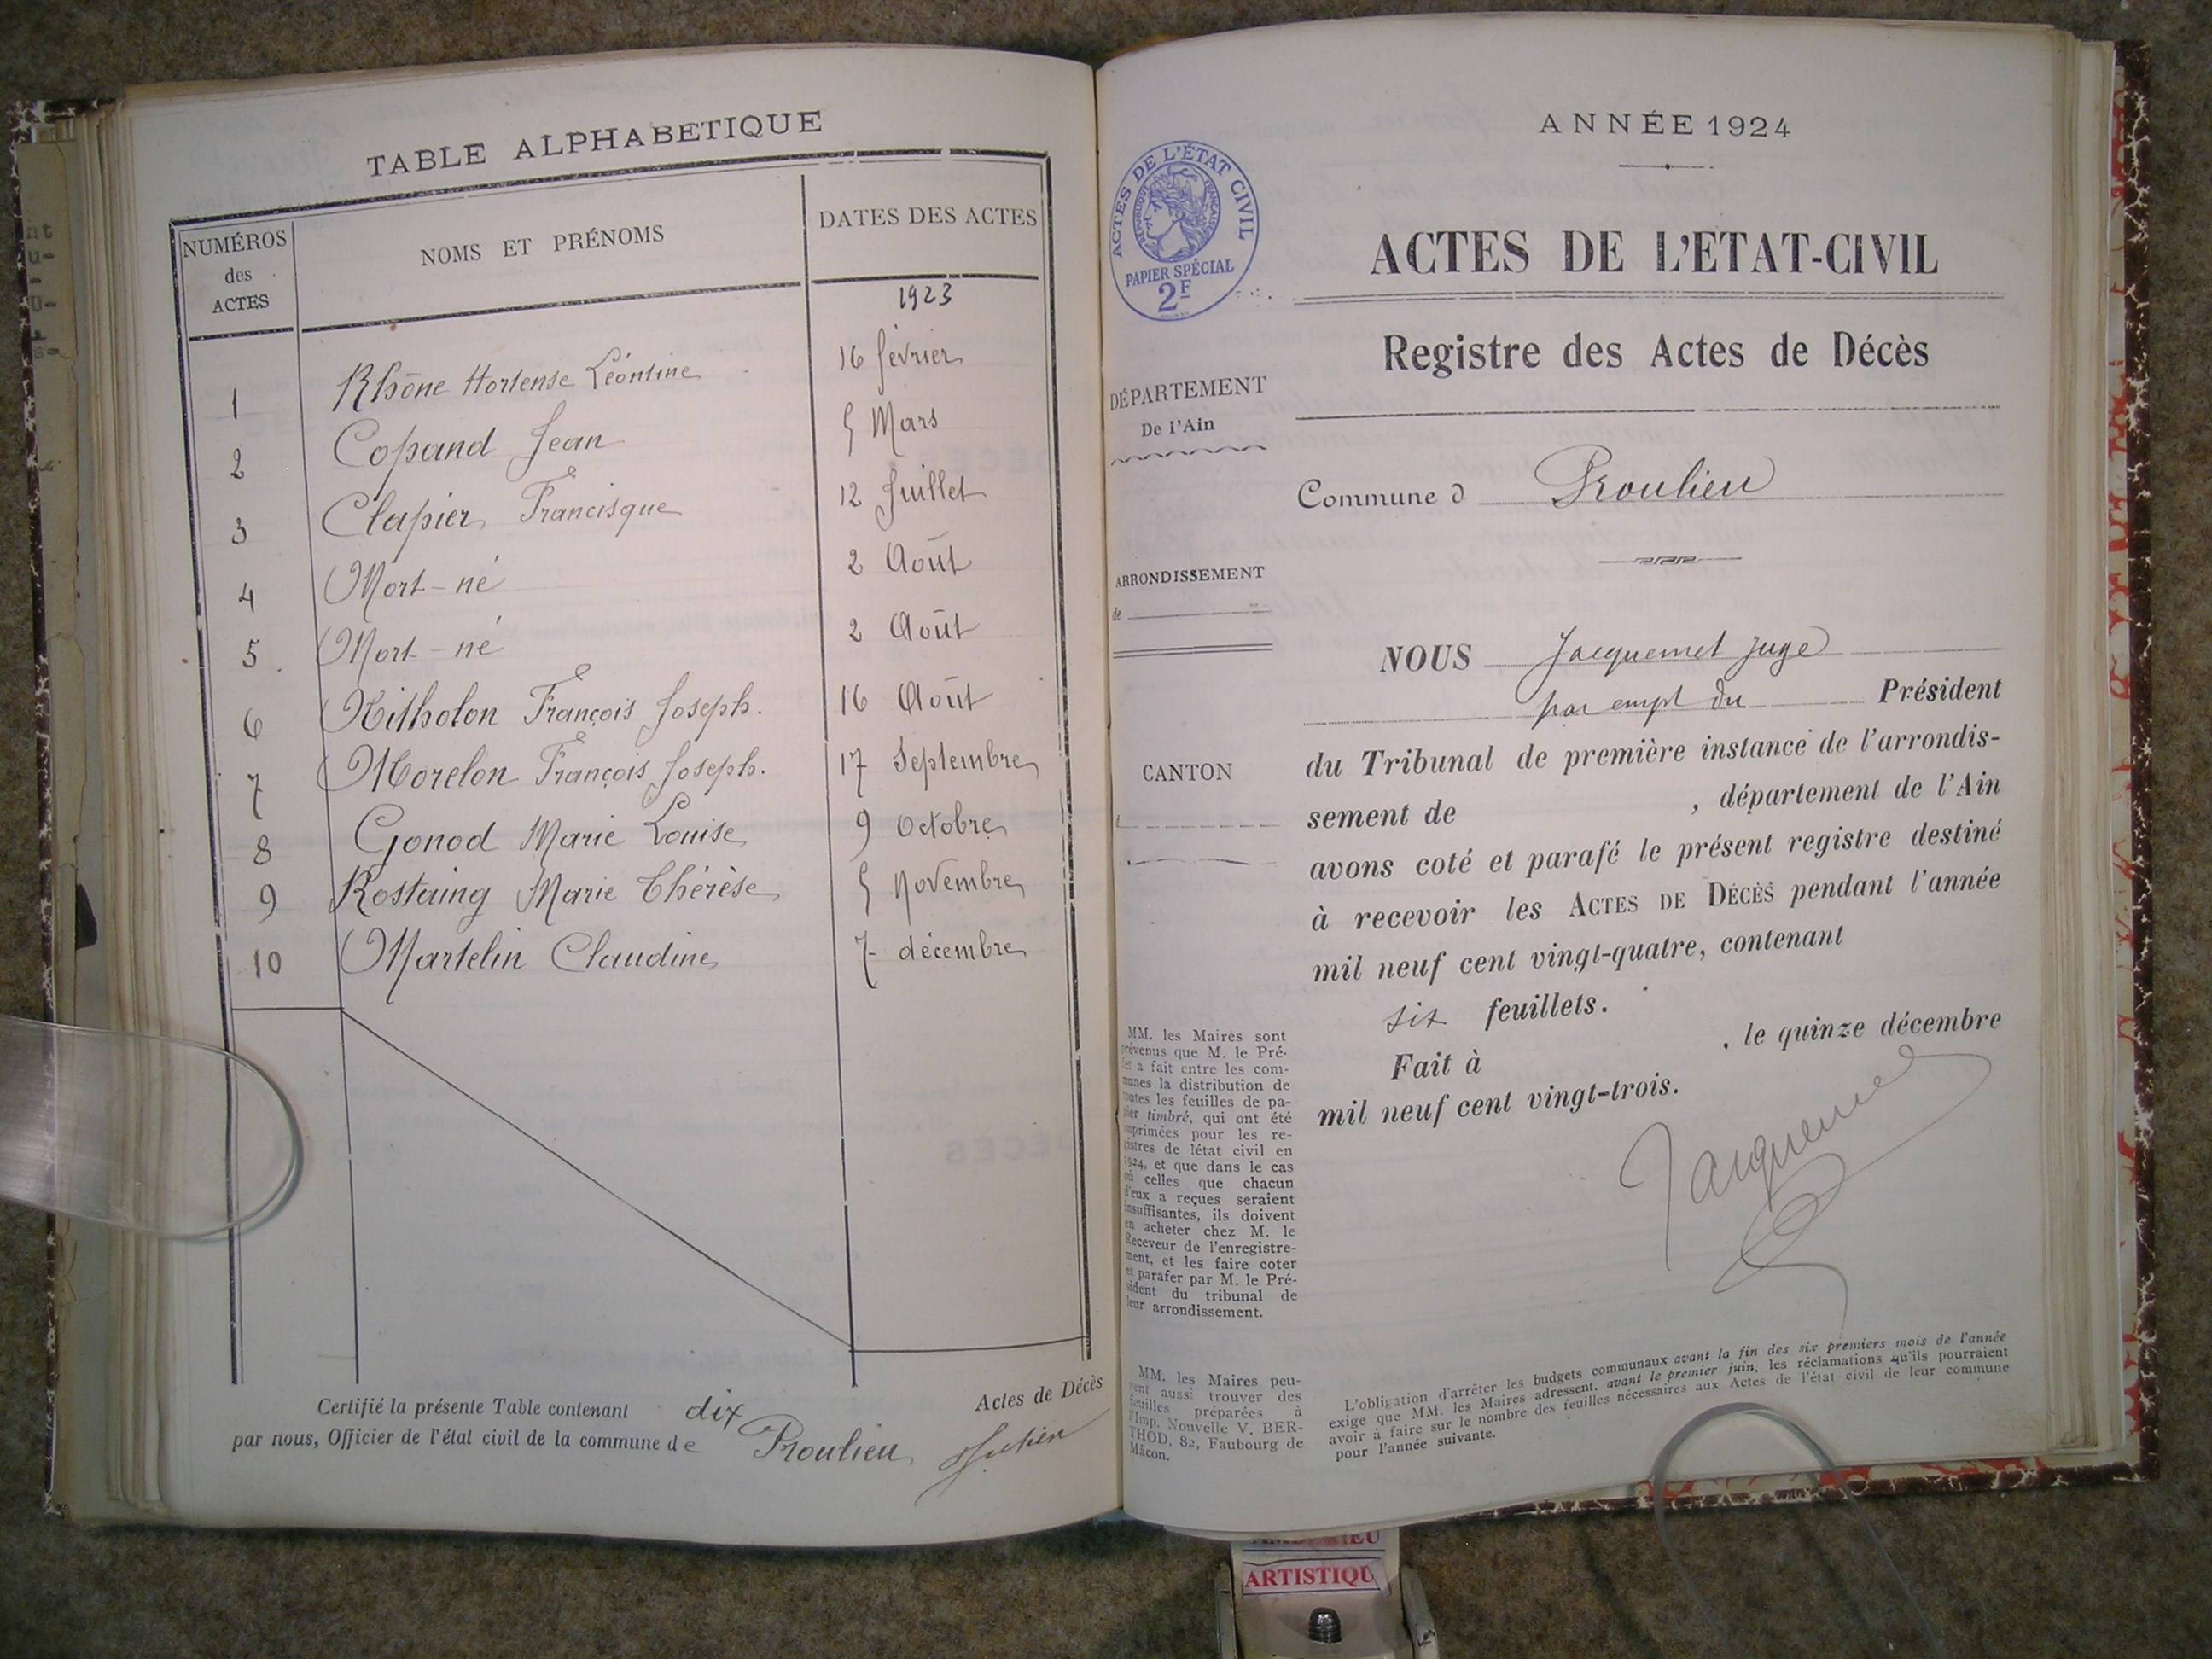 TABLE ALPHABETIQUE
NUMÉROS des ACTES
NOMS ET PRÉNOMS
DATES DES ACTES
1923
1 Rhône Hortense Léontine 16 février
2 Copand Jean 5 Mars
3 Clapier Francisque 12 Juillet
4 Mort-né 2 Août
5 Mort-né 2 Août
6 François Joseph. 16 Août
7 Morelon François Joseph. 17 Septembre
8 Gonod Marie Louise 9 Octobre
9 Rostaing Marie Thérèse 5 Novembre
10 Martelin Claudine 7 décembre
Certifié la présente Table contenant dix Actes de Décès
par nous, Officier de l'état civil de la commune de Proulieu
ANNÉE 1924
ACTES DE L'ÉTAT CIVIL
RÉPUBLIQUE FRANÇAISE
PAPIER SPÉCIAL
2F
ACTES DE L'ETAT-CIVIL
Registre des Actes de Décès
DÉPARTEMENT
De l'Ain
Commune d Proulieu
ARRONDISSEMENT
de
CANTON
d
NOUS Jacquemet juge
par empt du Président
du Tribunal de première instance de l'arrondis-
sement de , département de l'Ain
avons coté et parafé le présent registre destiné
à recevoir les ACTES DE DÉCÈS pendant l'année
mil neuf cent vingt-quatre, contenant
six feuillets.
Fait à , le quinze décembre
mil neuf cent vingt-trois.
Jacquemet
MM. les Maires sont
prévenus que M. le Pré-
fet a fait entre les com-
munes la distribution de
toutes les feuilles de pa-
pier timbré, qui ont été
imprimées pour les re-
gistres de létat civil en
1924, et que dans le cas
où celles que chacun
d'eux a reçues seraient
insuffisantes, ils doivent
en acheter chez M. le
Receveur de l'enregistre-
ment, et les faire coter
et parafer par M. le Pré-
sident du tribunal de
leur arrondissement.
MM. les Maires peu-
vent aussi trouver des
feuilles préparées à
l'Imp. Nouvelle V. BER-
THOD, 82, Faubourg de
Mâcon.
L'obligation d'arrêter les budgets communaux avant la fin des six premiers mois de l'année
exige que MM. les Maires adressent, avant le premier juin, les réclamations qu'ils pourraient
avoir à faire sur le nombre des feuilles nécessaires aux Actes de l'état civil de leur commune
pour l'année suivante.
ARTISTIQU